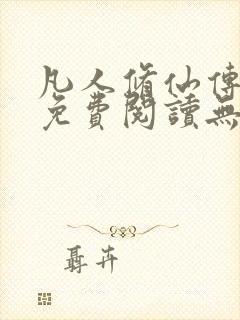 凡人脩仙傳
免費閱讀無
聶卉